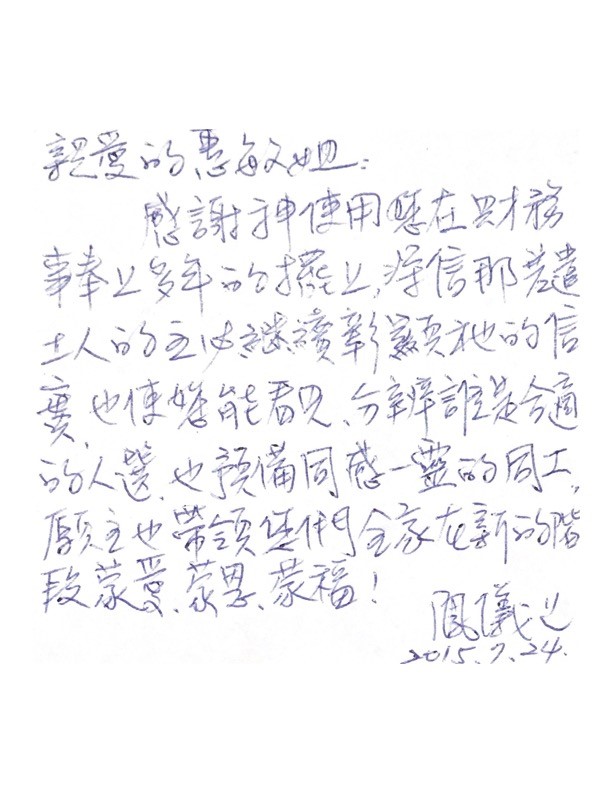 親愛的惠敏姐：
感謝神使用您在財務
事奉上多年的擺上,深信那差遣
工人的主必繼續彰顯祂的信
實,也使您能看見、分辨誰是合適
的人選,也預備同感一靈的同工,
願主也帶領您們全家在新的階
段蒙愛、蒙恩、蒙福！
鳳儀上
2015.7.24.